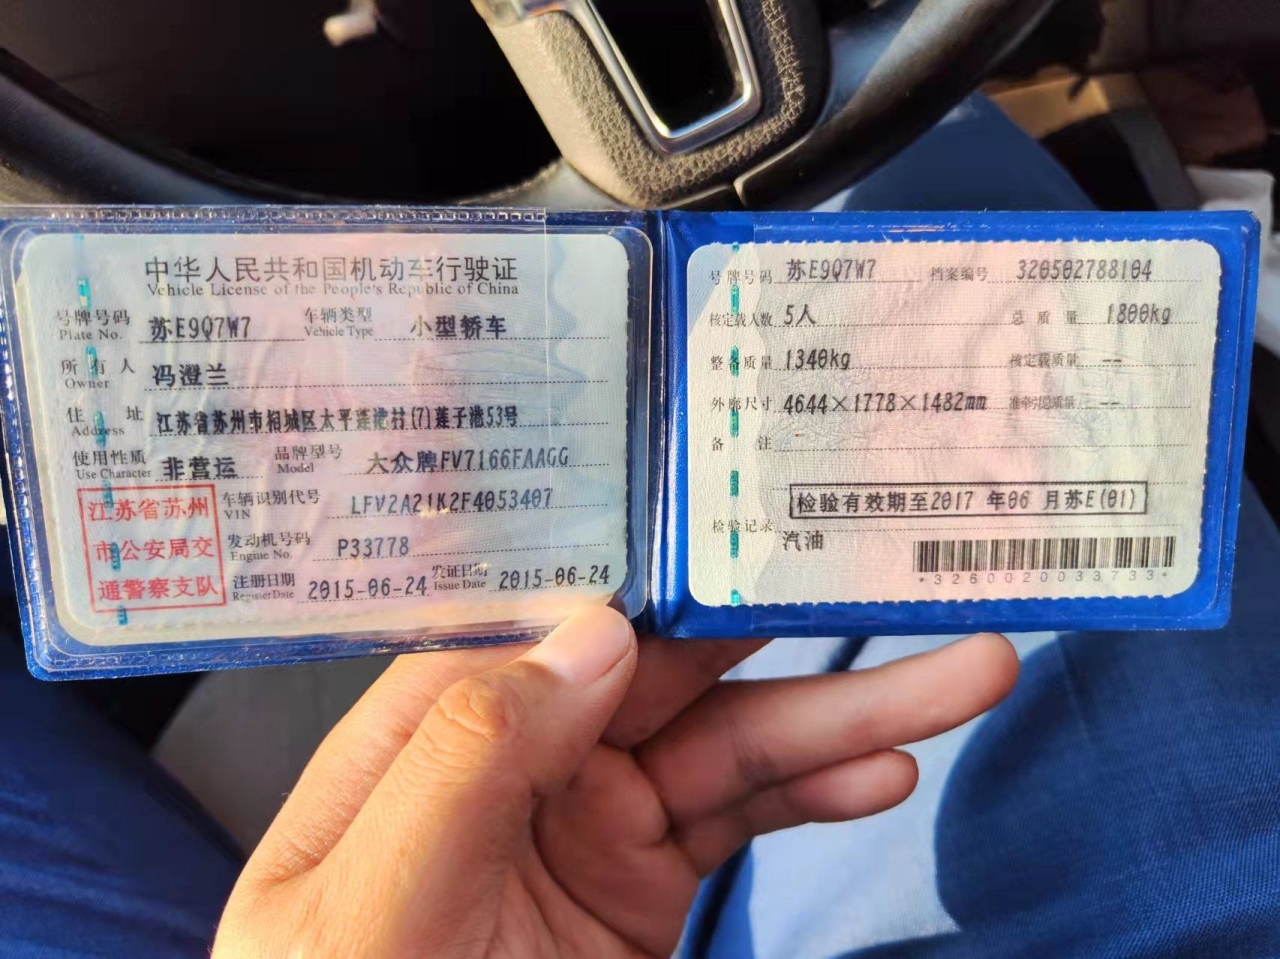 中华人民共和国机动车行驶证
Vehicle License of the People's Republic of China
号牌号码 苏E9Q7W7 车辆类型 小型轿车
Plate No. Vehicle Type
所有人 冯澄兰
Owner
住址 江苏省苏州市相城区太平莲港村(7)莲子港53号
Address
使用性质 非营运 品牌型号 大众牌FV7166FAAGG
Use Character Model
江苏省苏州市公安局交通警察支队
车辆识别代号 LFV2A21K2F4053407
VIN
发动机号码 P33778
Engine No.
注册日期 2015-06-24 发证日期 2015-06-24
Register Date Issue Date
号牌号码 苏E9Q7W7 档案编号 320502788104
核定载人数 5人 总质量 1800kg
整备质量 1340kg 核定载质量 --
外廓尺寸 4644×1778×1482mm 准牵引总质量 --
备注
检验有效期至2017年06月苏E(01)
检验记录
汽油
*3260020033733*